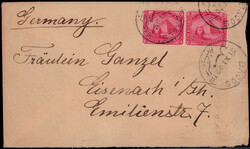 Germany.
Fräulein Ganzel
Eisenach i/Th.
Emilienstr. 7.